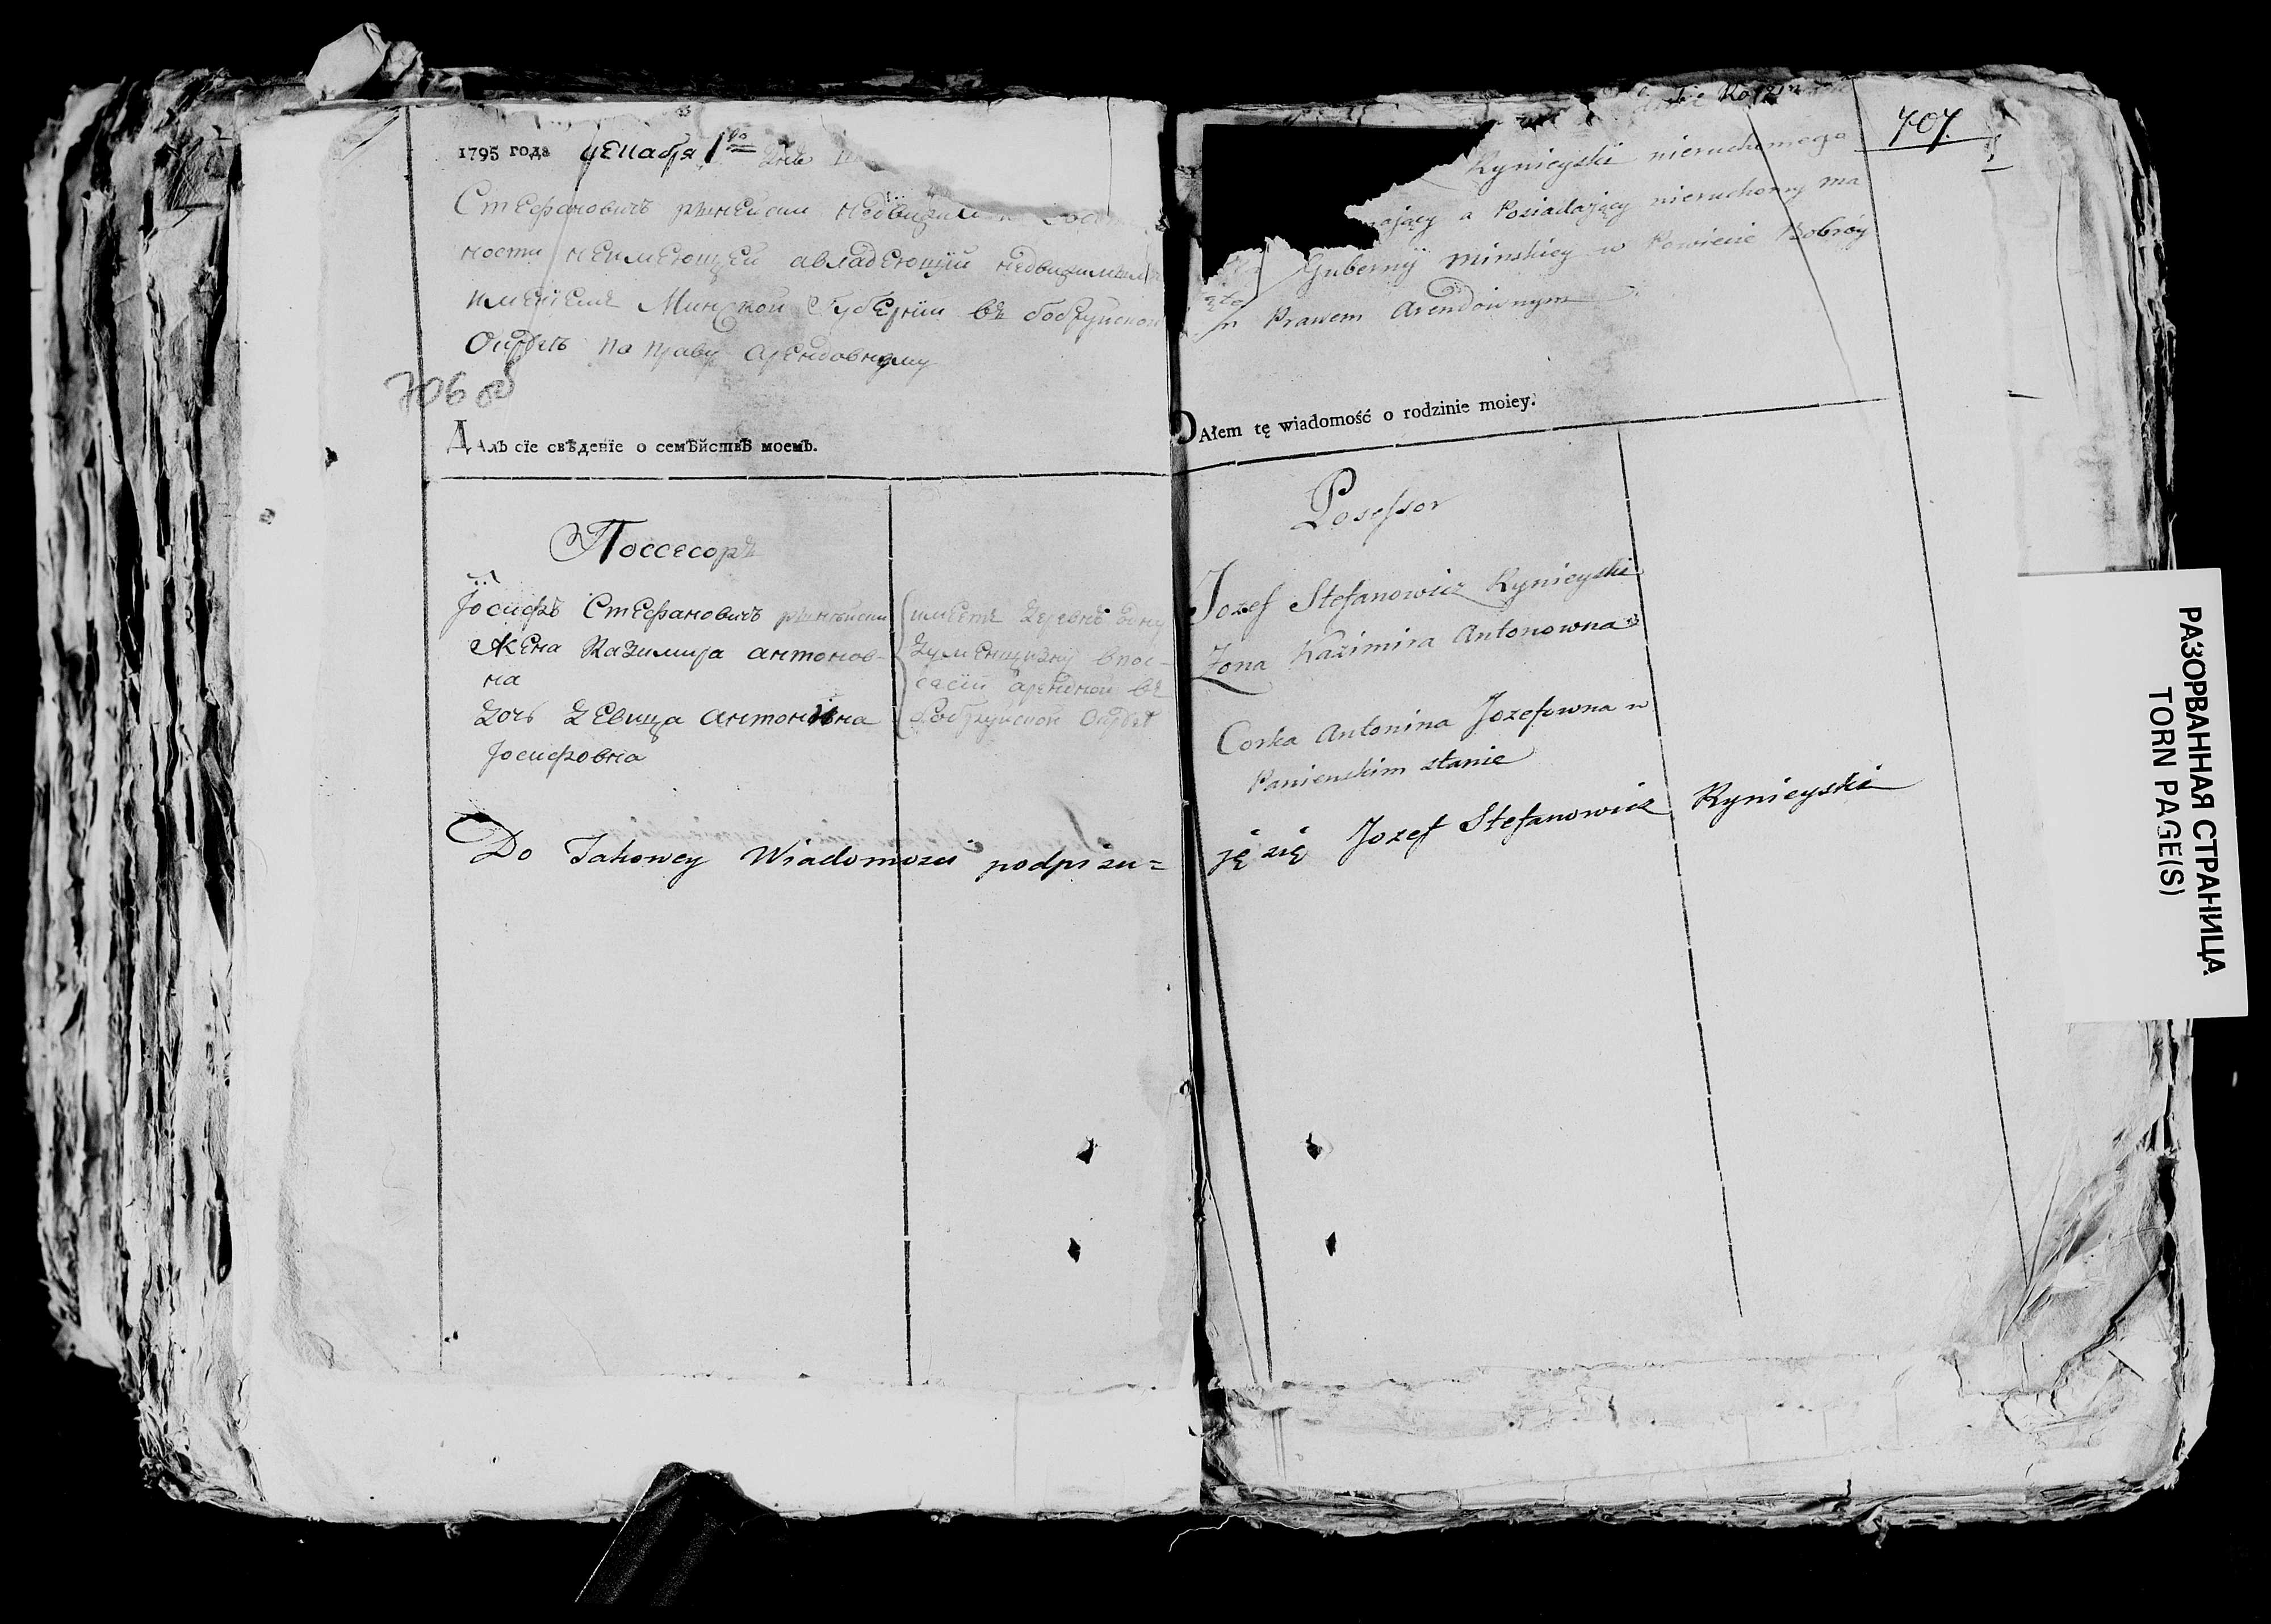 1795 года декабря 1го дня
Стефановичъ рынейски недвижимой
ности неимеющей авладеющий недвижимым
имениемъ Минской Губернии въ бобруйской
Округъ по праву арендовному
706 об
ДАлъ сїе свѣденїе о семѣйствѣ моемъ.
Поссесоръ
Іосифъ Стефановичъ рынейски
Жена Казимира антонов-
на
дочь девица антонина
Іосифовна
имеетъ деревнъ одну
впос-
сесии арендной въ
бобруйской Округе
Do Takowey Wiadomosci podpisu=
707
Rynieyski nieruchomego
a Posiadający nieruchomy ma
Gubernij minskiey w Powiecie Bobróy
Prawem Arendownym
DAłem tę wiadomość o rodzinie moiey.
Posessor
Jozef Stefanowicz Rynieyski
Zona Kazimira Antonowna
Corka Antonina Jozefowna w
Panienskim stanie
ję się Jozef Stefanowicz Rynieyski
РАЗОРВАННАЯ СТРАНИЦА
TORN PAGE(S)